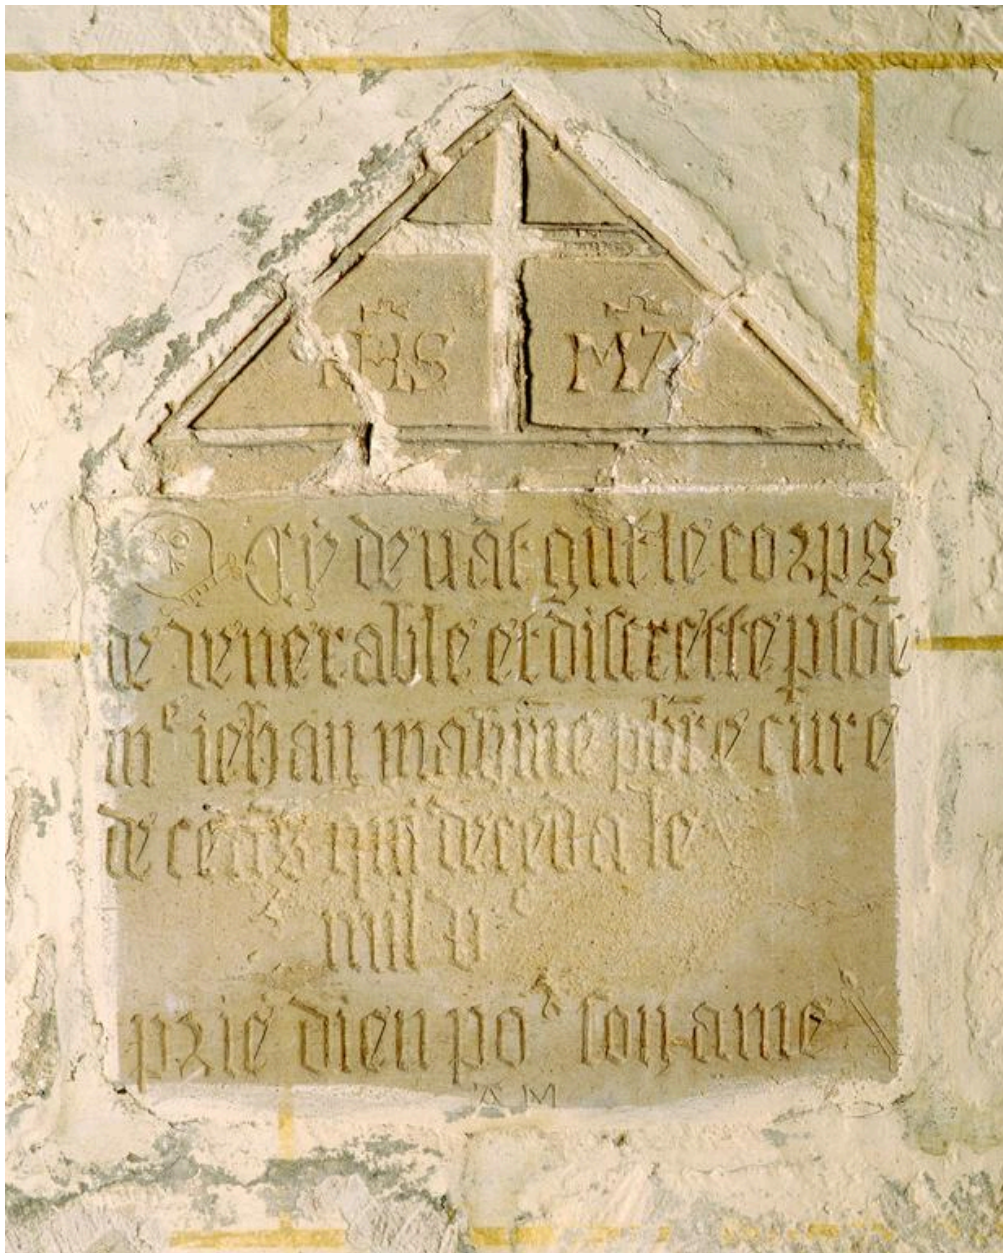 IHS MA
Cy devāt gist le corps
de venerable et discrette psōe
mᵉ iehan mahūe pbr̄e cure
de cēās qui deceda le
mil vᶜ
prié dieu poʳ son ame
AM